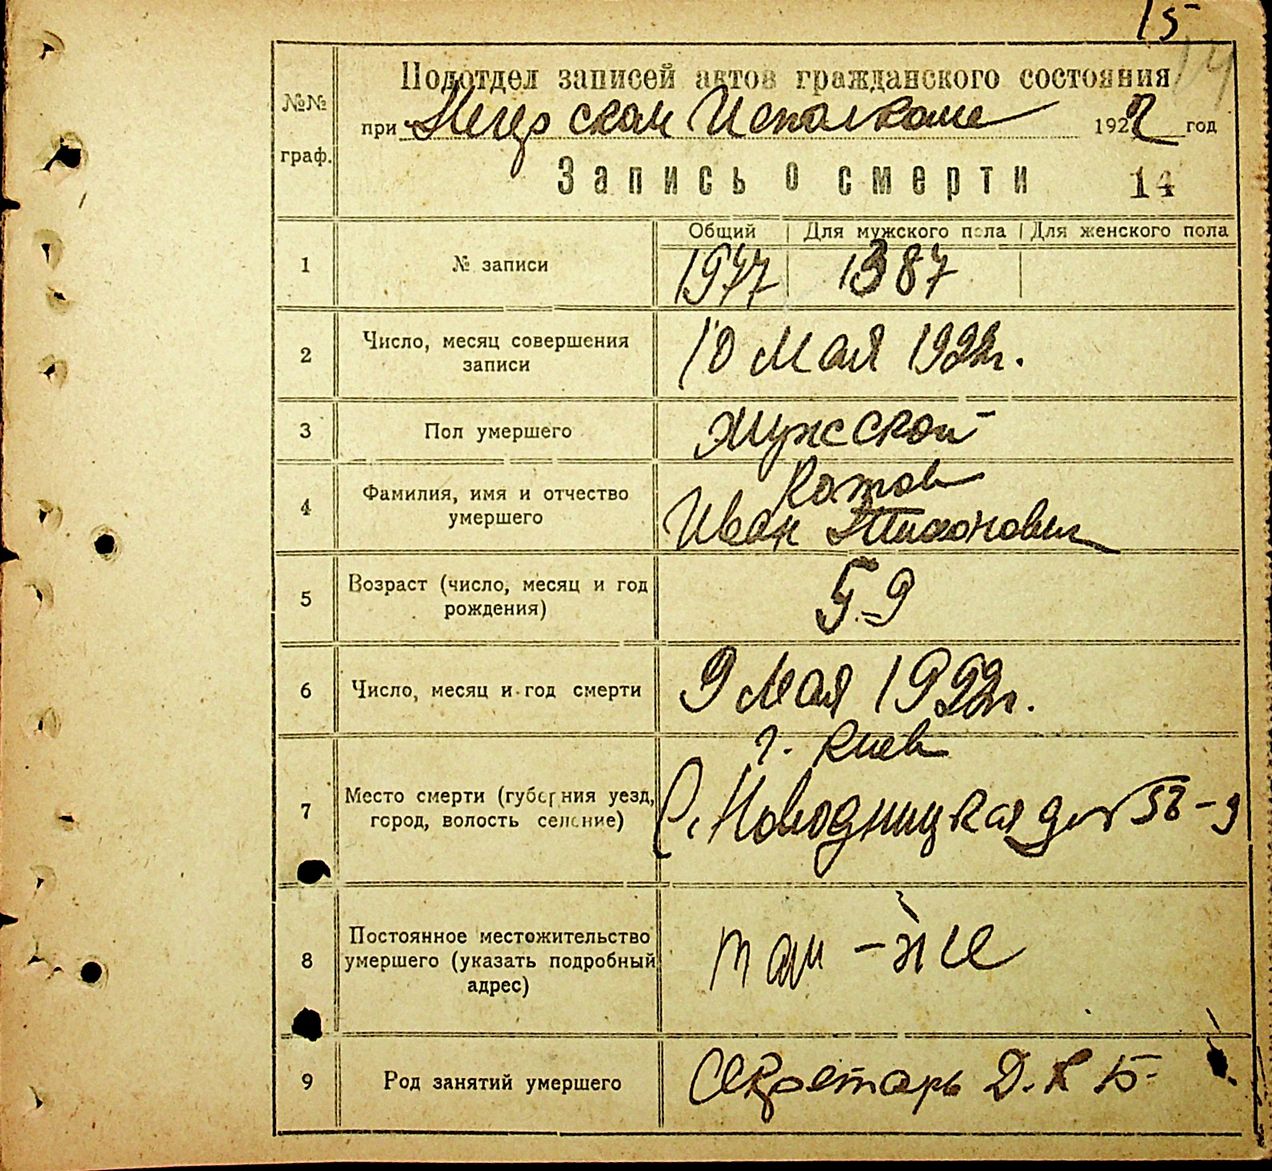 15
14
Подотдел записей актов гражданского состояния
при Исполкоме 1922 год
Запись о смерти 14
№№ граф.
Общий Для мужского пола Для женского пола
1 № записи 1977 1387
2 Число, месяц совершения записи 10 Мая 1922г.
3 Пол умершего Мужской
4 Фамилия, имя и отчество умершего Котов Иван Тихонович
5 Возраст (число, месяц и год рождения) 59
6 Число, месяц и год смерти 9 Мая 1922г.
7 Место смерти (губерния уезд, город, волость селение) г. Киев
8 Постоянное местожительство умершего (указать подробный адрес) там-же
9 Род занятий умершего Секретарь